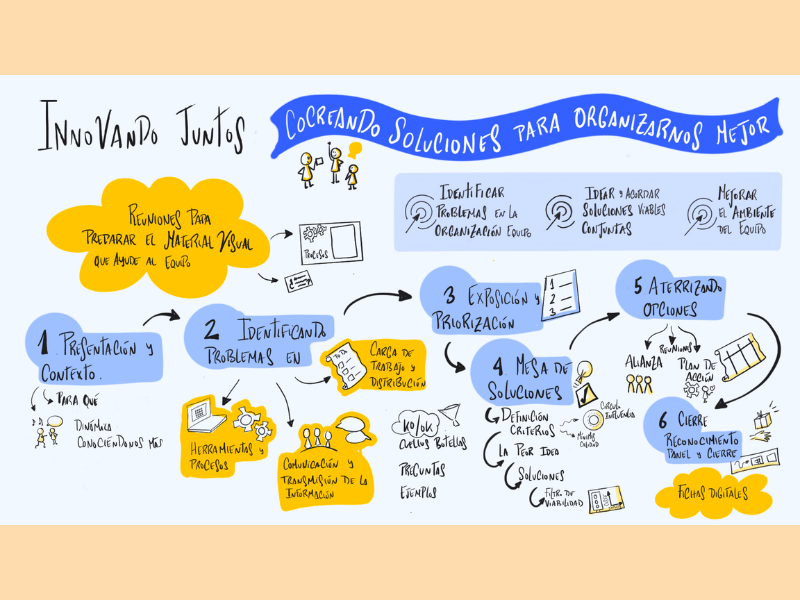 INNOVANDO JUNTOS
COCREANDO SOLUCIONES PARA ORGANIZARNOS MEJOR
REUNIONES PARA
PREPARAR EL MATERIAL VISUAL
QUE AYUDE AL EQUIPO
PROCESOS
IDENTIFICAR
PROBLEMAS EN LA
ORGANIZACIÓN EQUIPO
IDEAR Y ACORDAR
SOLUCIONES VIABLES
CONJUNTAS
MEJORAR
EL AMBIENTE
DEL EQUIPO
1. PRESENTACIÓN Y
CONTEXTO.
PARA QUÉ
DINÁMICA
CONOCIÉNDONOS MÁS
2 IDENTIFICANDO
PROBLEMAS EN
HERRAMIENTAS Y
PROCESOS
COMUNICACIÓN Y
TRANSMISIÓN DE LA
INFORMACIÓN
TO DO
CARGA DE
TRABAJO Y
DISTRIBUCIÓN
3 EXPOSICIÓN Y
PRIORIZACIÓN
1
2
3
KO/OK
CUELLOS BOTELLAS
PREGUNTAS
EJEMPLOS
4. MESA DE
SOLUCIONES
DEFINICIÓN
CRITERIOS
CIRCULO
INFLUENCIA
LA PEOR IDEA
SOLUCIONES
FILTRO DE
VIABILIDAD
5 ATERRIZANDO
OPCIONES
REUNIONES
ALIANZA
PLAN DE
ACCIÓN
6 CIERRE
RECONOCIMIENTO
PANEL Y CIERRE
FICHAS DIGITALES